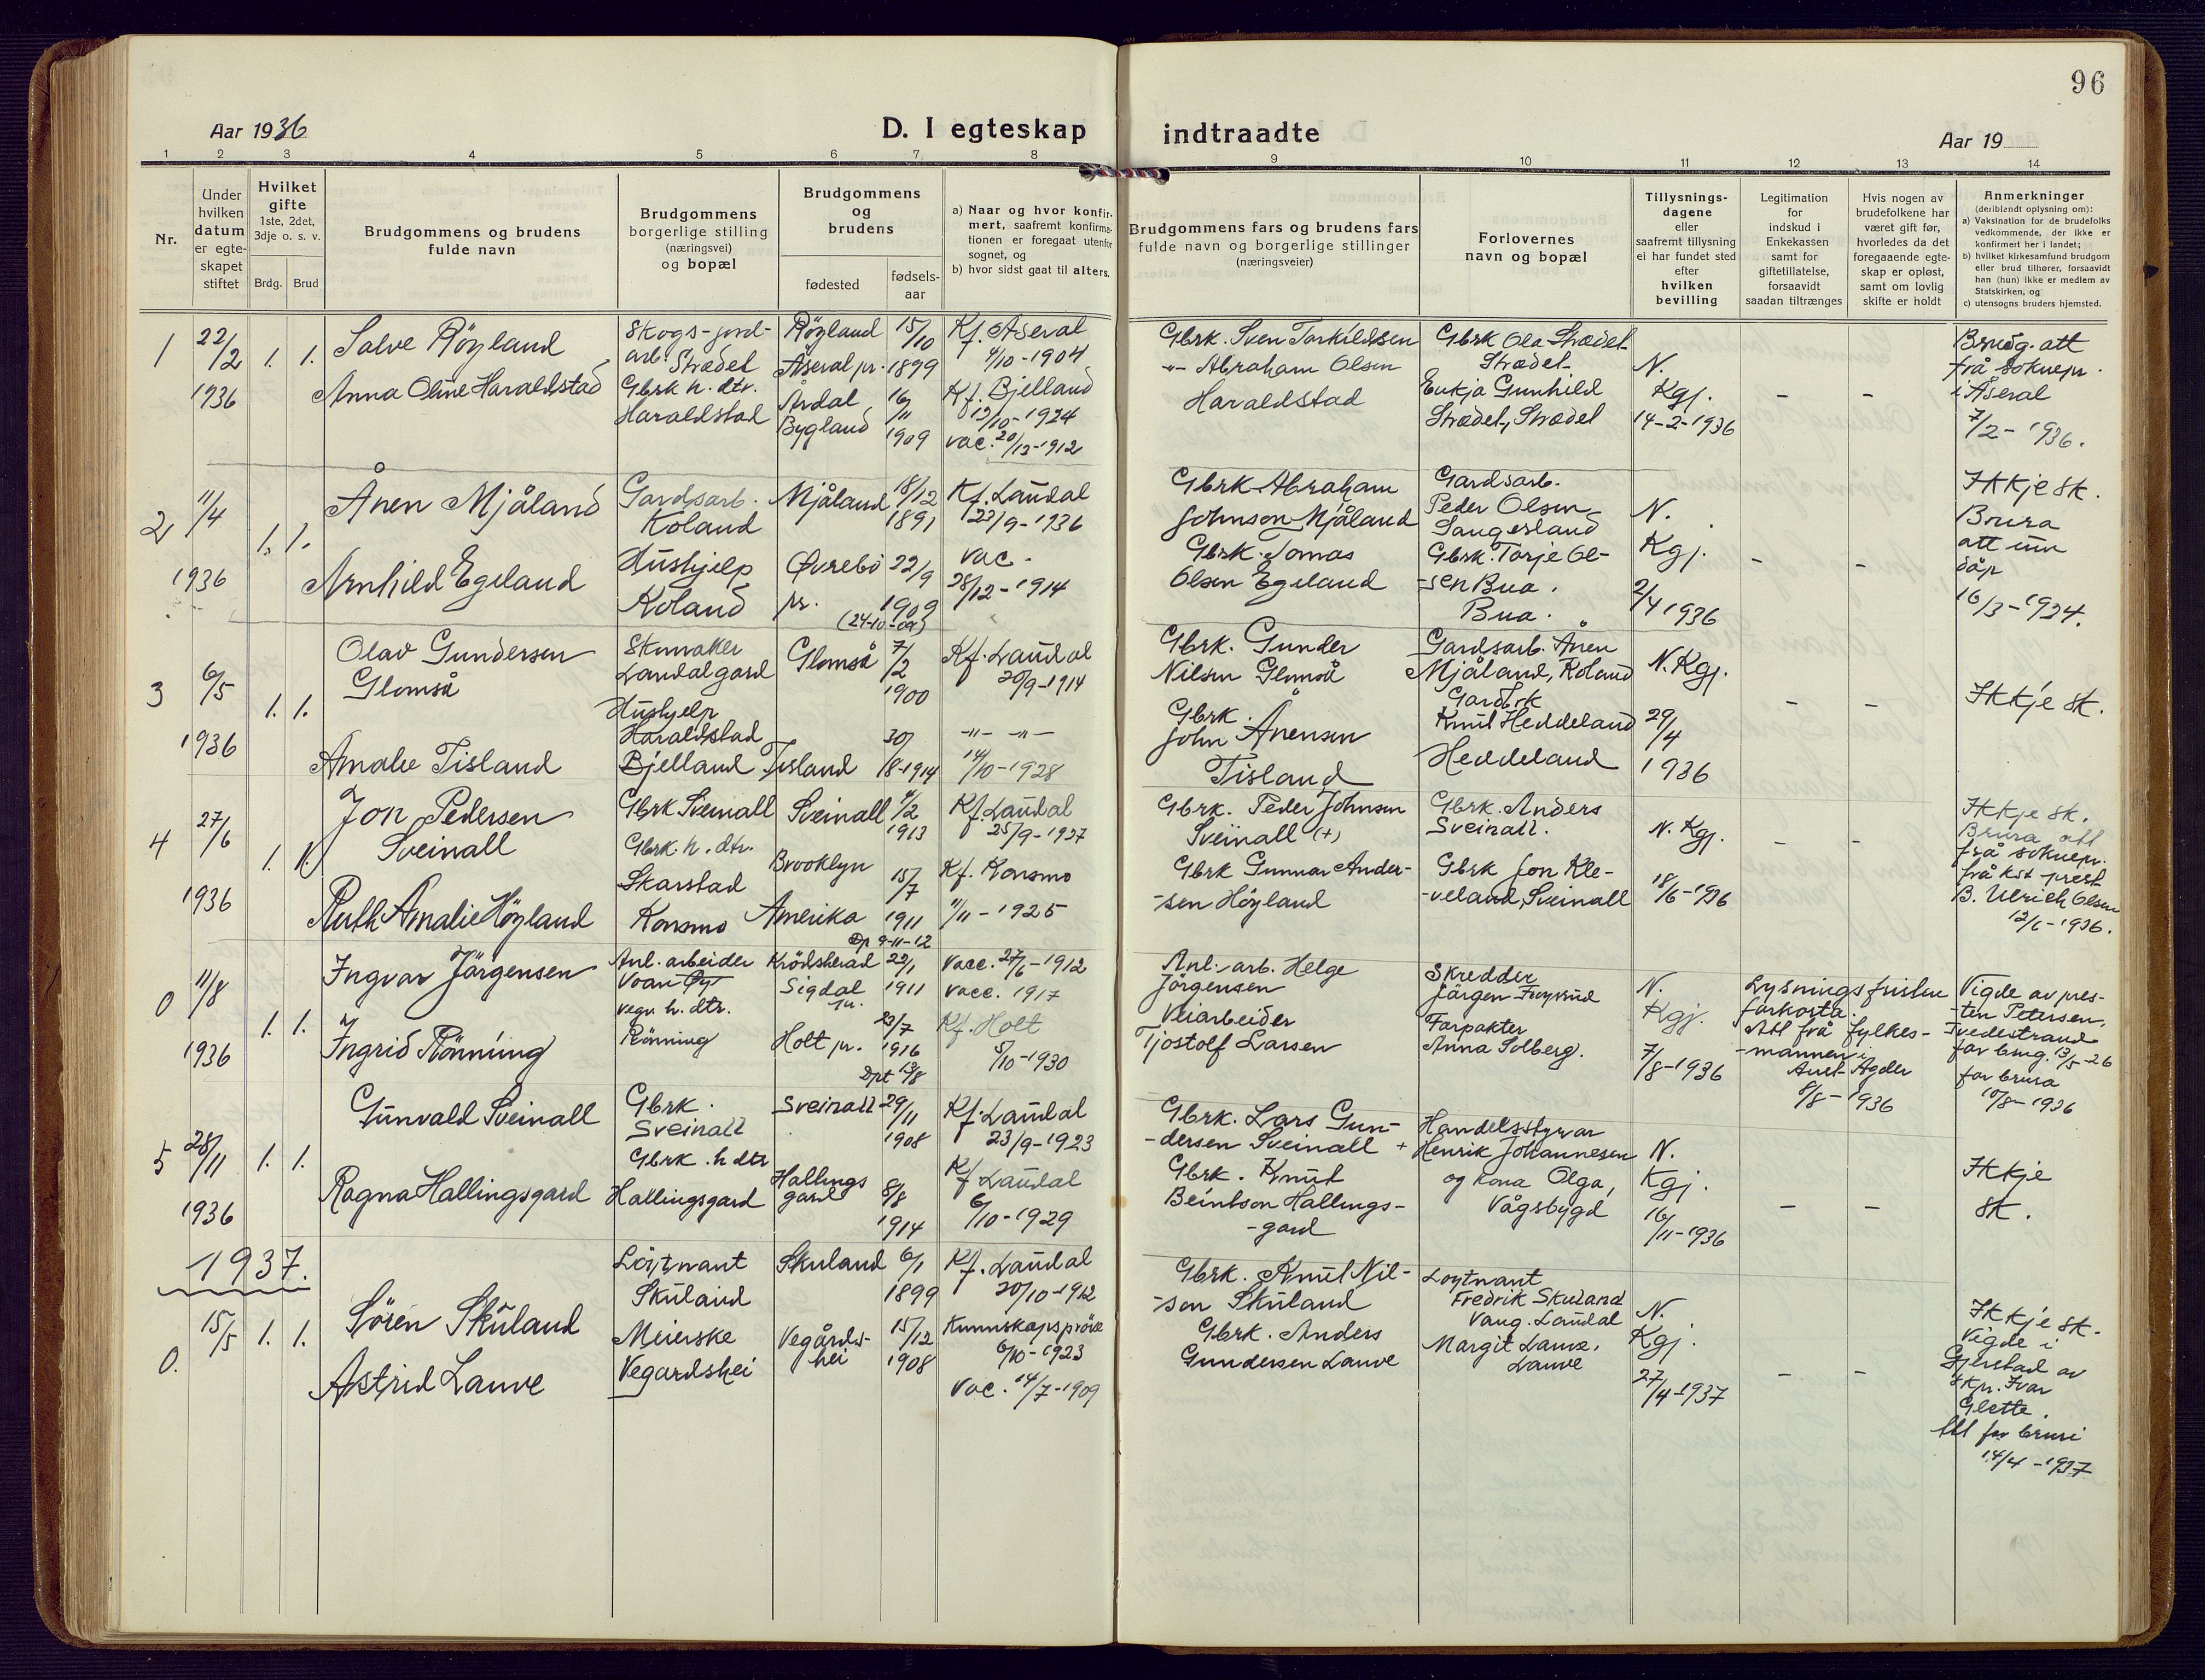 96
Aar 1936
D. I egteskap
indtraadte
Aar 19
1 2 3 4 5 6 7 8 9 10 11 12 13 14
Nr.
Under
hvilken
datum
er egte-
skapet
stiftet
Hvilket
gifte
1ste, 2det,
3dje o. s. v.
Brdg. Brud
Brudgommens og brudens
fulde navn
Brudgommens
borgerlige stilling
(næringsvei)
og bopæl
Brudgommens
og
brudens
fødested
fødsels-
aar
a) Naar og hvor konfir-
mert, saafremt konfirma-
tionen er foregaat utenfor
sognet, og
b) hvor sidst gaat til alters.
Brudgommens fars og brudens fars
fulde navn og borgerlige stillinger
(næringsveier)
Forlovernes
navn og bopæl
Tillysnings-
dagene
eller
saafremt tillysning
ei har fundet sted
efter
hvilken
bevilling
Legitimation
for
indskud i
Enkekassen
samt for
giftetillatelse,
forsaavidt
saadan tiltrænges
Hvis nogen av
brudefolkene har
været gift før,
hvorledes da det
foregaaende egte-
skap er opløst,
samt om lovlig
skifte er holdt
Anmerkninger
(deriblandt oplysning om):
a) Vaksination for de brudefolks
vedkommende, der ikke er
konfirmert her i landet;
b) hvilket kirkesamfund brudgom
eller brud tilhører, forsaavidt
han (hun) ikke er medlem av
Statskirken, og
c) utensogns bruders hjemsted.
1
22/2
1936
1. 1.
Salve Röyland
Anna Oline Haraldstad
Skogs-jord-
arb. Strædet
Gbrk h. dtr.
Haraldstad
Röyland
Åseral pr.
Årdal
Bygland
15/10
1899
16/11
1909
Kf. Åseral
4/10-1904
Kf. Bjelland
12/10-1924
vac. 20/12-1912
Gbrk. Sven Torkildsen
-"- Abraham Olsen
Haraldstad
Gbrk Ola Strædet
Strædet
Enkja Gunhild
Strædet, Strædet
N.
Kgj.
14-2-1936
-
-
Brudg. att
frå soknepr.
i Åseral
7/2-1936.
2
11/4
1936
1. 1.
Ånen Mjåland
Arnhild Egeland
Gardsarb.
Koland
Hushjelp
Koland
Mjåland
Øvrebö
pr.
18/12
1891
22/9
1909
(24-10-09)
Kf. Laudal
23/9-1936
vac.
28/12-1914
Gbrk Abraham
Johnson Mjåland
Gbrk. Tomas
Olsen Egeland
Gardsarb.
Peder Olsen
Saugesland
Gbrk. Torje Ol-
-sen Bua.
Bua.
N.
Kgj.
2/4 1936
-
-
Ikkje sk.
Brura
att um
dåp
16/3-1924.
3
6/5
1936
1. 1.
Olav Gundersen
Glomså
Amalie Tisland
Skumaker
Laudalgard
Hushjelp
Haraldstad
Bjelland
Glomså
Tisland
7/2
1900
30/8-1914
Kf. Laudal
20/9-1914
-"- -"-
14/10-1928
Gbrk. Gunder
Nilsen Glomså
Gbrk.
John Ånensen
Tisland
Gardsarb. Ånen
Mjåland, Koland
Gardbrk
Knut Heddeland
Heddeland
N. Kgj.
29/4
1936
-
-
Ikkje sk.
4
27/6
1936
1. 1.
Jon Pedersen
Sveinall
Ruth Amalie Höyland
Gbrk Sveinall
Gbrk. h. dtr.
Skarstad
Konsmo
Sveinall
Brooklyn
Amerika
4/2
1913
15/7
1911
Dp 9-11-12
Kf. Laudal
25/9-1927
Kf. Konsmo
11/11-1925
Gbrk. Peder Johnsen
Sveinall (+)
Gbrk Gunnar Ander-
-sen Höyland
Gbrk. Anders
Sveinall.
Gbrk Jon Kle-
-veland, Sveinall
N. Kgj.
18/6-1936
-
-
Ikkje sk.
Brura att
frå soknepr.
frå kst prest
B. Ulrich Olsen
12/6-1936.
0
11/8
1936
1. 1.
Ingvar Jörgensen
Ingrid Rönning
Anl. arbeider
vegv. h. dtr.
Rönning
Krödsherad
Sigdal
pr.
Holt pr.
22/1
1911
23/7
1916
Dpt 13/8
Vacc. 27/6-1912
vacc. 1917
Kf. Holt
5/10-1930
Anl. arb. Helge
Jörgensen
Veiarbeider
Tjostolf Larsen
Skredder
Jörgen
Forpakter
Anna Solberg.
N.
Kgj.
7/8-1936
Lysningsfristen
forkorta.
Att frå fylkes-
-mannen i
Aust-Agder
8/8-1936
Vigde av pres-
-ten Petersen,
Tvedestrand
for brug. 13/5-26
for brura
10/8-1936
5
28/11
1936
1. 1.
Gunvald Sveinall
Ragna Hallingsgard
Gbrk.
Sveinall
Gbrk. h dtr
Hallingsgard
Sveinall
Hallings
gard
29/11
1908
8/8
1914
Kf. Laudal
23/9-1923
Kf Laudal
6/10-1929
Gbrk. Lars Gun-
-dersen Sveinall +
Gbrk. Knut
Beintson Hallings-
-gard
Handelsstyrar
Henrik Johannesen
og kona Olga,
Vågsbygd
N.
Kgj.
16/11-1936
-
-
Ikkje
sk.
1937.
0.
15/5
1. 1.
Sören Skuland
Astrid Lauve
Löytnant
Skuland
Meierske
Vegardshei
Skuland
Vegårds-
hei
6/1
1899
15/12
1908
Kf. Laudal
20/10-1912
Kunnskapspröve
6/10-1923
Vac. 14/7-1909
Gbrk. Knut Nil-
-sen Skuland
Gbrk. Anders
Gundersen Lauve
Loytnant
Fredrik Skuland
Vaug. Laudal
Margit Lauve,
Lauve
N.
Kgj.
27/4-1937
-
-
Ikkje sk.
Vigde i
Gjerstad av
skpr. Ivar
Glette.
att for bruri
14/4-1937